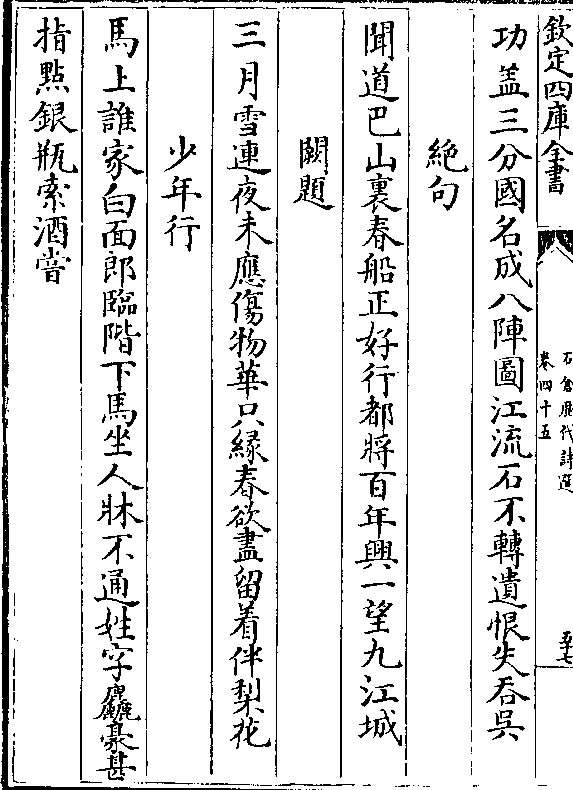 欽定四庫全書
石倉歷代詩選
卷四十五
五十七
功盖三分國名成八陣圖江流石不轉遺恨失吞吳
絶句
聞道巴山裏春船正好行都將百年興一望九江城
闕題
三月雪連夜未應傷物華只緣春欲盡留着伴梨花
少年行
馬上誰家白面郎臨階下馬坐人牀不通姓字麤豪甚
指點銀瓶索酒嘗